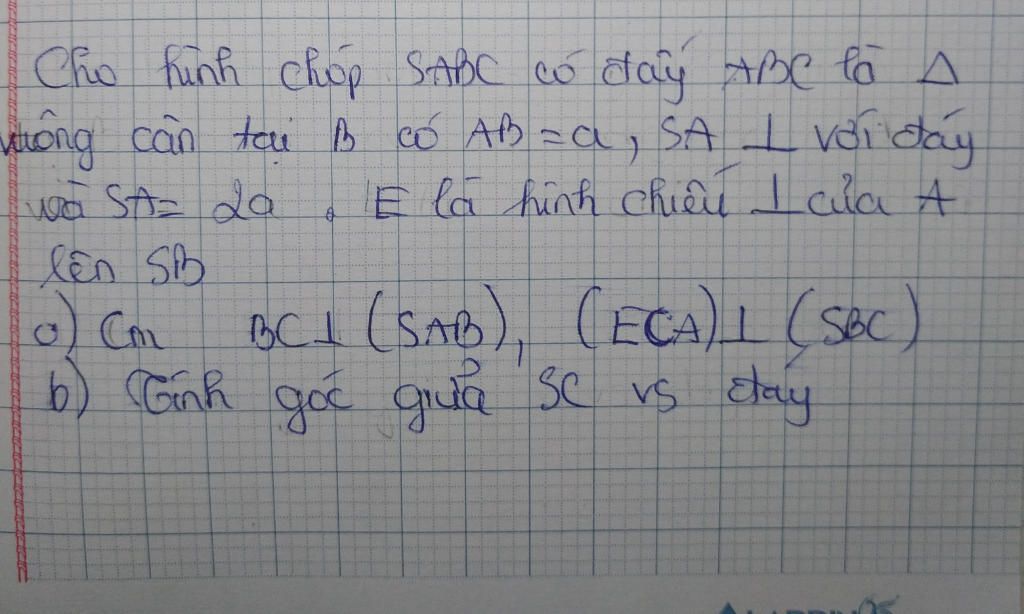 Cho hình chóp SABC có đáy ABC là Δ
vuông cân tại B có AB = a, SA ⊥ với đáy
và SA = 2a. E là hình chiếu ⊥ của A
lên SB
a) Cm BC ⊥ (SAB), (ECA) ⊥ (SBC)
b) Tính góc giữa SC vs đáy